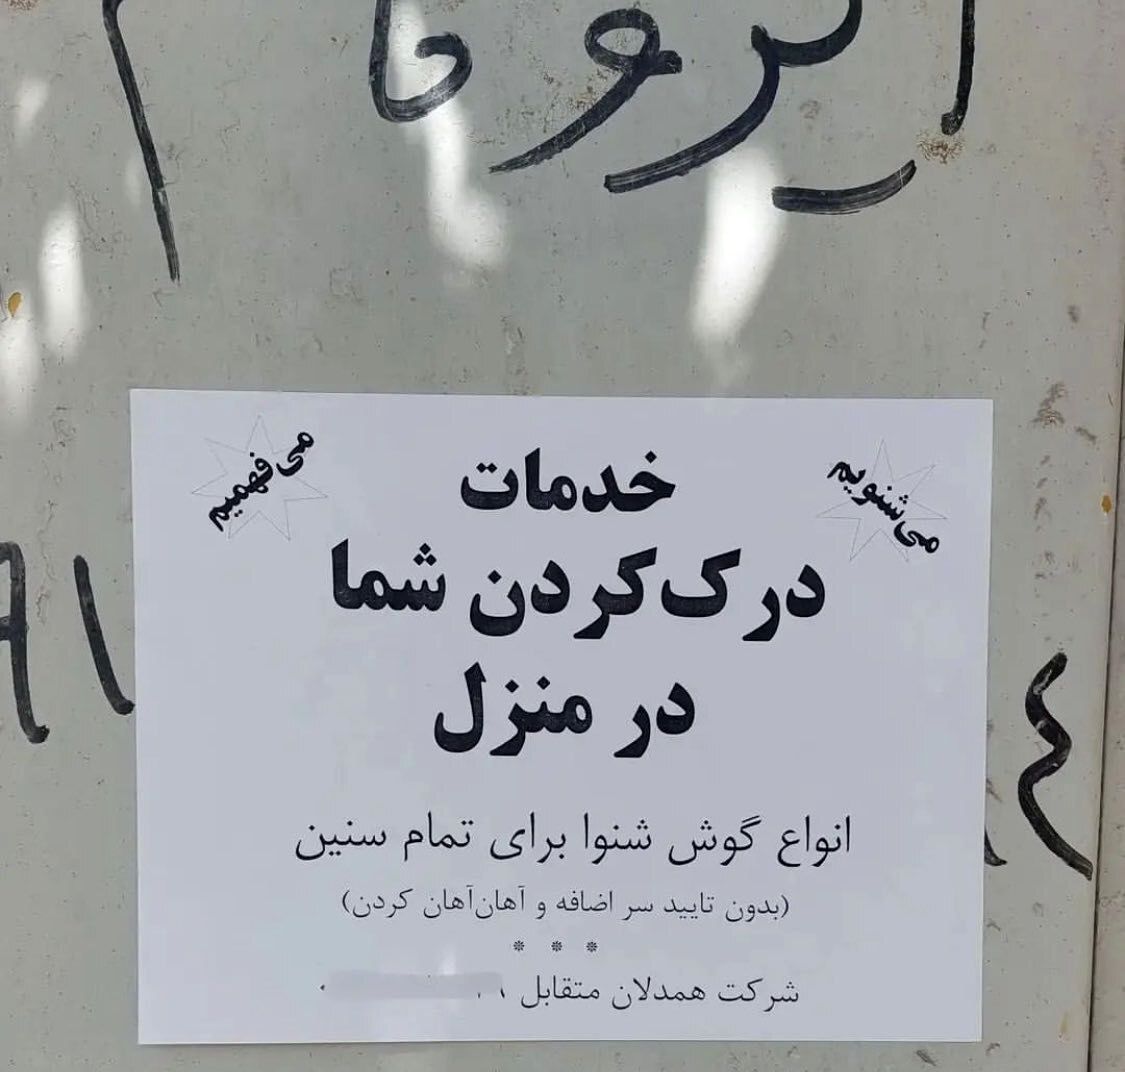 ایزوگام
می‌شنویم
می‌فهمیم
خدمات
درک‌کردن شما
در منزل
انواع گوش شنوا برای تمام سنین
(بدون تایید سر اضافه و آهان‌آهان کردن)
* * *
شرکت همدلان متقابل